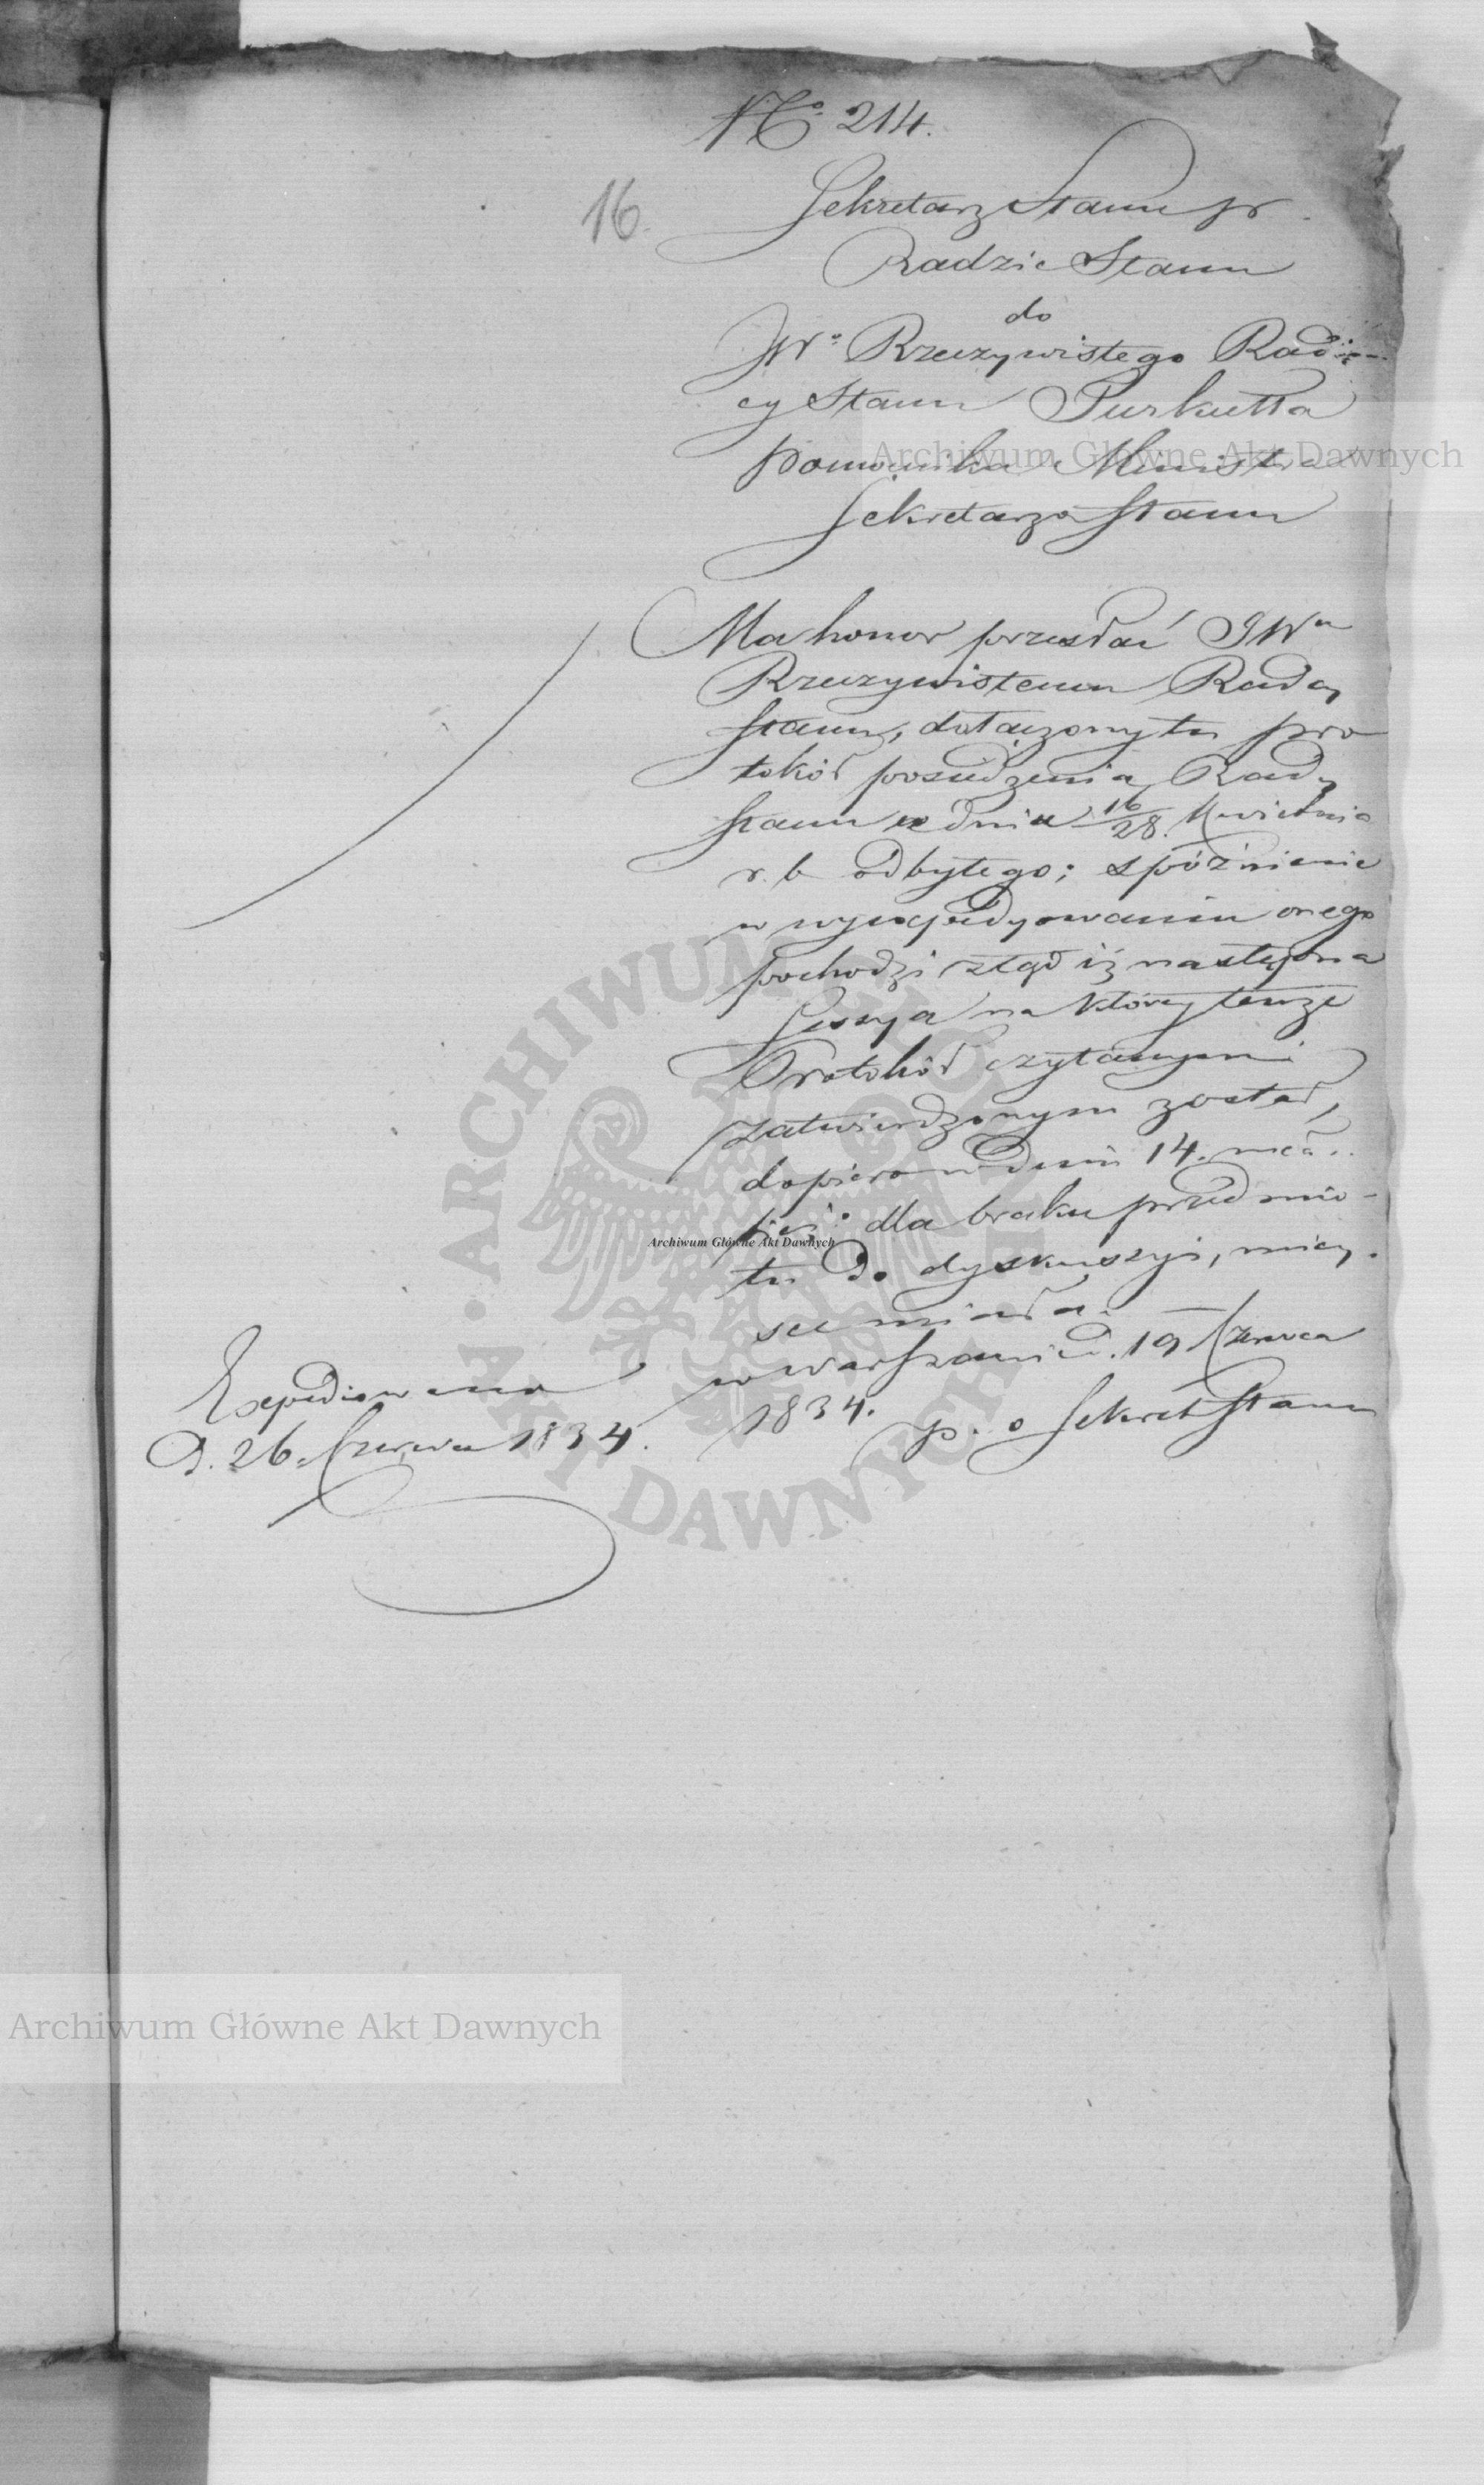 No 214.
16.
Sekretarz Stanu pr.
Radzie Stanu
do
JWo Rzeczywistego Radz-
cy Stanu Turkułła
pomocnika Ministra
Sekretarza Stanu
Ma honor przesłać JWu
Rzeczywistemu Radcy
Stanu, dołączony tu pro
tokół posiedzenia Rady
Stanu w dniu 16/28. Kwietnia
r. b odbytego; spóźnienie
w wyexpedyowaniu onego
pochodzi ztąd iż następna
Sessya na którey tenże
Protokół czytanym i
zatwierdzonym został,
dopiero w dniu 14. mca..
dla braku przedmio-
tu do dyskussyi, miey-
sce miała. —
w Warszawie d. 19 Czerwca
1834.
p. o Sekret Stanu
Expediowano
D. 26 Czerwca 1834.
Archiwum Główne Akt Dawnych
Archiwum Główne Akt Dawnych
Archiwum Główne Akt Dawnych
ARCHIWUM GŁÓWNE AKT DAWNYCH